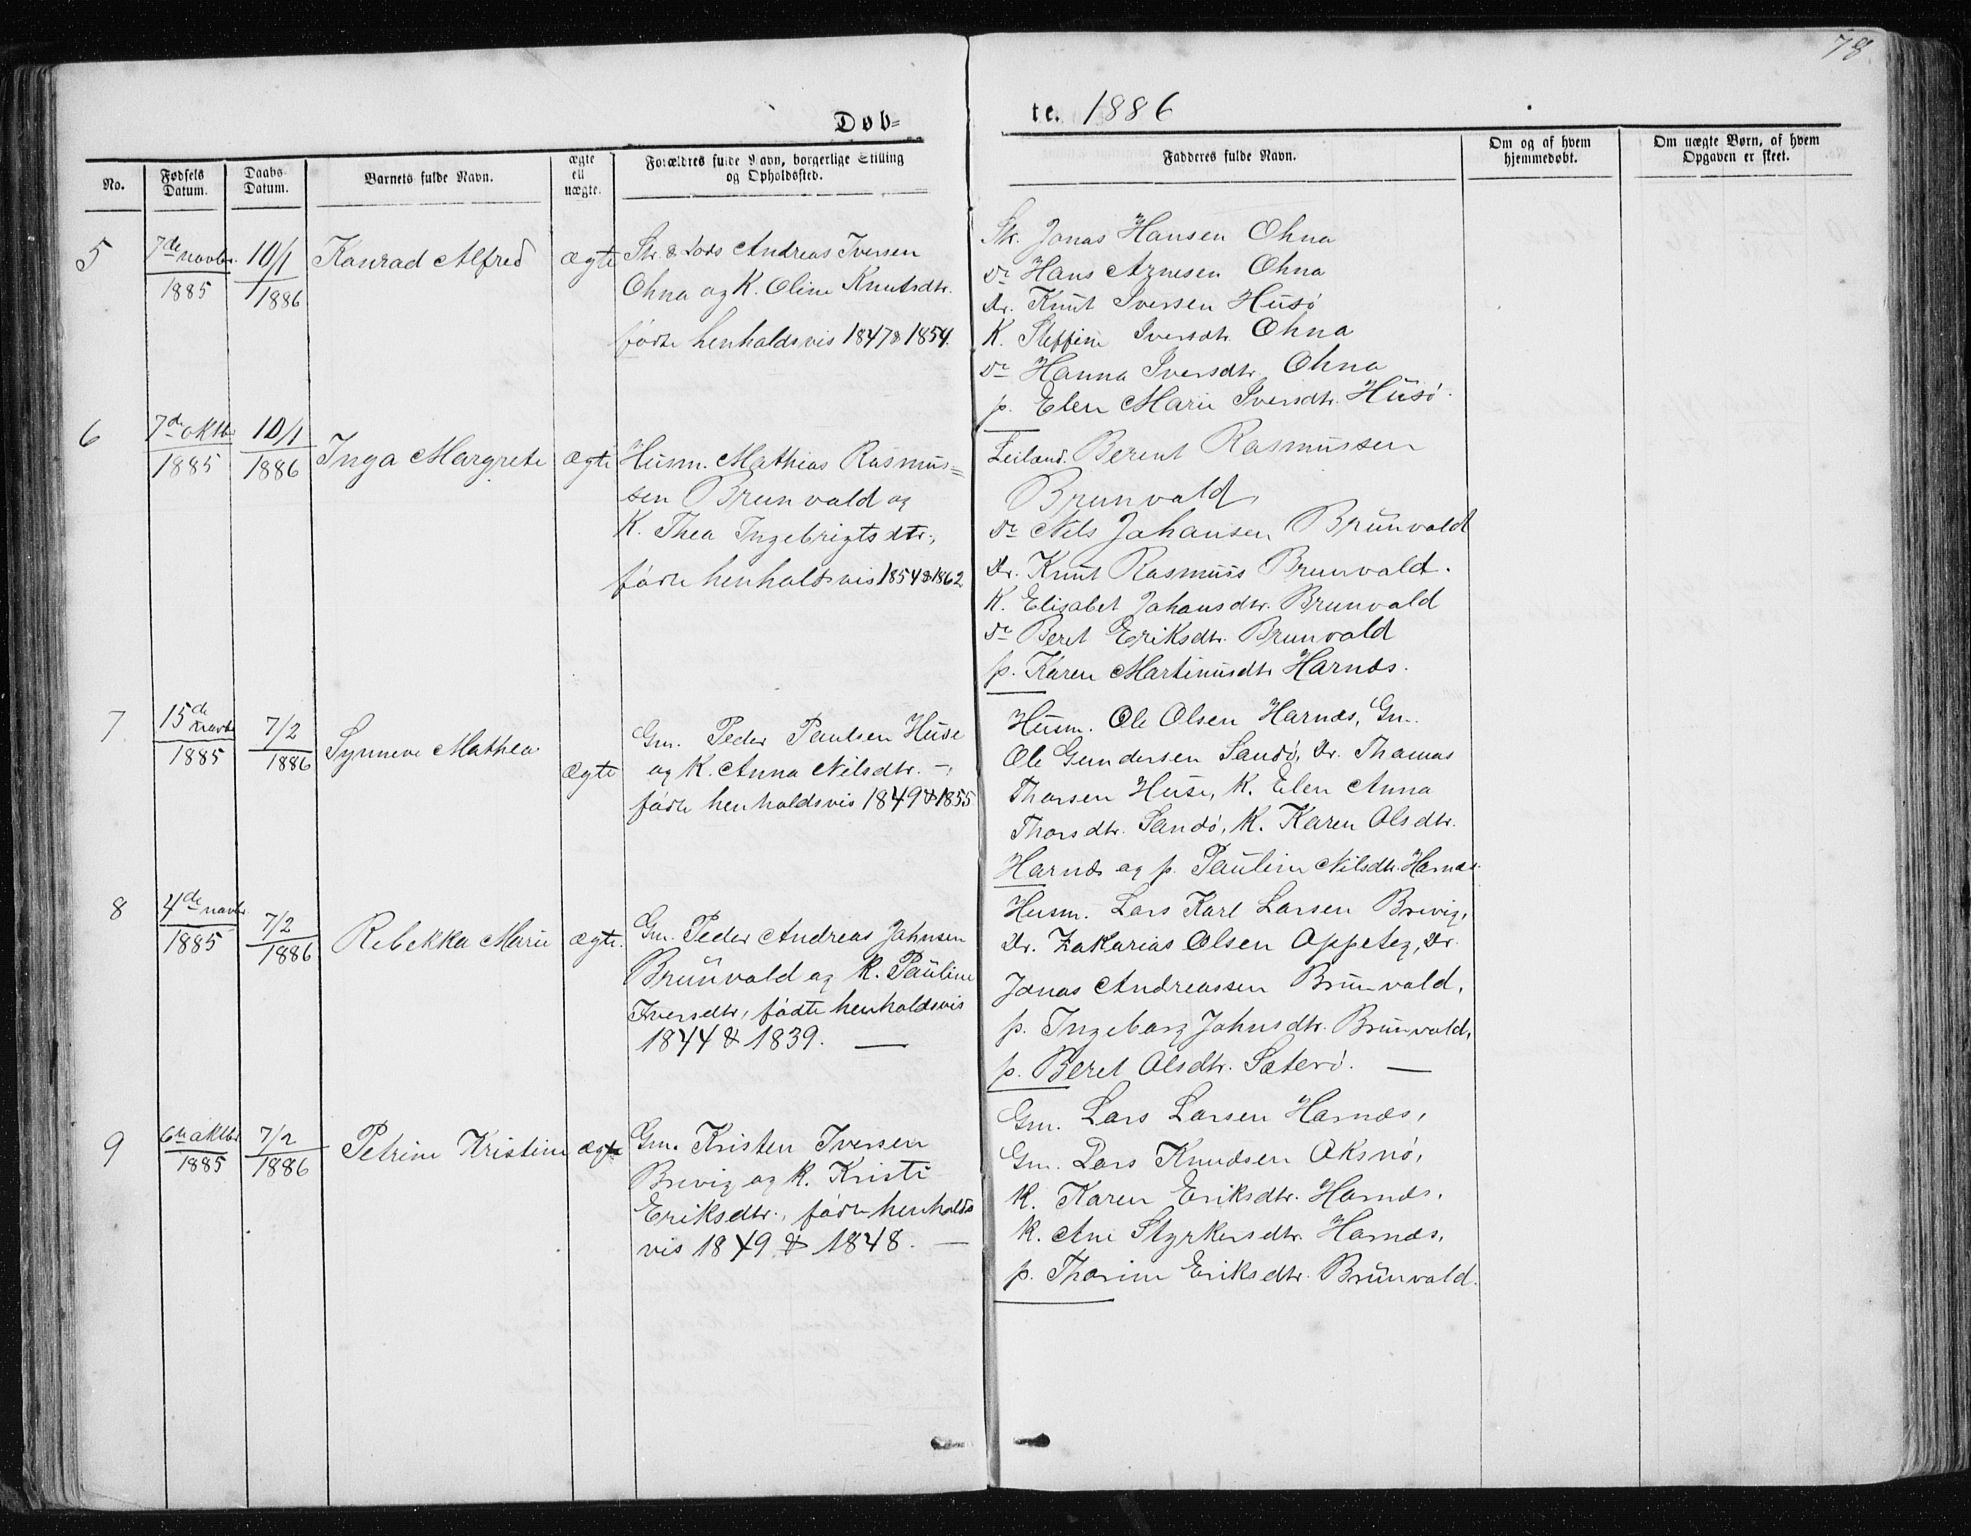 78.
Døb=
te. 1886
No.
Fødsels Datum.
Daabs Datum.
Barnets fulde Navn.
ægte ell uægte.
Forældres fulde Navn, borgerlige Stilling
og Opholdssted.
Fadderes fulde Navn.
Om og af hvem
hjemmedøbt.
Om uægte Børn, af hvem
Opgaven er skeet.
5
7de novbr. 1885
10/1 1886
Konrad Alfred
ægte
Str. & Lods Andreas Iversen
Ohna og K. Oline Knutsdtr.
fødte henholdsvis 1847 & 1854.
Str. Jonas Hansen Ohna
do Hans Arnesen Ohna
Dr. Knut Iversen Husø
K. Steffine Iversdtr. Ohna
do Hanna Iversdtr. Ohna
p. Elen Marie Iversdtr. Husø.
6
7de oktbr 1885
10/1 1886
Inga Margrete
ægte
Husm. Mathias Rasmus=
sen Brunvald og
K. Thea Ingebrigtsdtr.,
fødte henholdsvis 1854 & 1862
Leiland. Berent Rasmussen
Brunvald,
do Nils Johansen Brunvald
Dr. Knut Rasmuss Brunvald.
K. Elisabet Johansdtr. Brunvald
do Beret Eriksdtr. Brunvald
p. Karen Martinusdtr Harnæs.
7
15de novbr 1885
7/2 1886
Synneve Mathea
ægte
Gm. Peder Paulsen Huse
og K. Anna Nilsdtr. —,
fødte henholdsvis 1849 & 1855
Husm. Ole Olsen Harnæs, Gm.
Ole Gundersen Sandø, Dr. Thomas
Thorsen Huse, K. Elen Anna
Thorsdtr. Sandø, K. Karen Olsdtr.
Harnæs og p. Pauline Nilsdtr. Harnæs.
8
4de novbr. 1885
7/2 1886
Rebekka Marie
ægte.
Gm. Peder Andreas Johnsen
Brunvald og K. Pauline
Iversdtr., fødte henholdsvis
1844 & 1839. —
Husm. Lars Karl Larsen Brevig,
Dr. Zakarias Olsen Oppeteg, Dr.
Jonas Andreassen Brunvald,
p. Ingeborg Johnsdtr. Brunvald,
p. Beret Olsdtr. Säterø. —
9
6te oktbr 1885
7/2 1886
Petrine Kristine
ægte
Gm. Kristen Iversen
Brevig og K. Kristi
Eriksdtr., fødte henholds
vis 1849 & 1848. —
Gm. Lars Larsen Harnæs,
Gm. Lars Knudsen Oksnø,
K. Karen Eriksdtr. Harnæs,
K. Ane Styrkersdtr. Harnæs,
p. Thorine Eriksdtr. Brunvald.